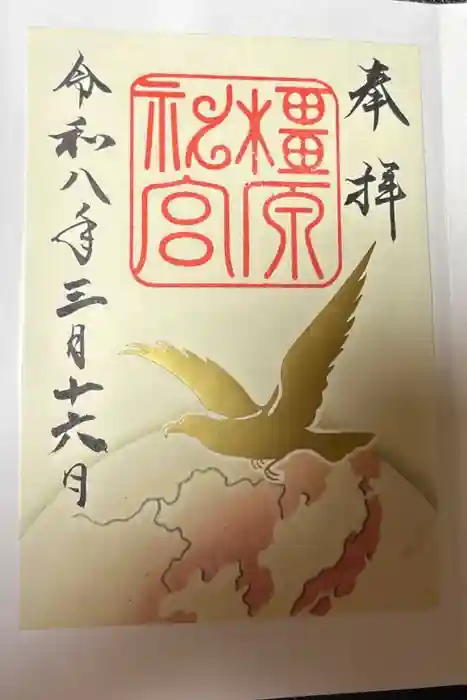 奉拝
橿原
神宮
令和八年三月十六日